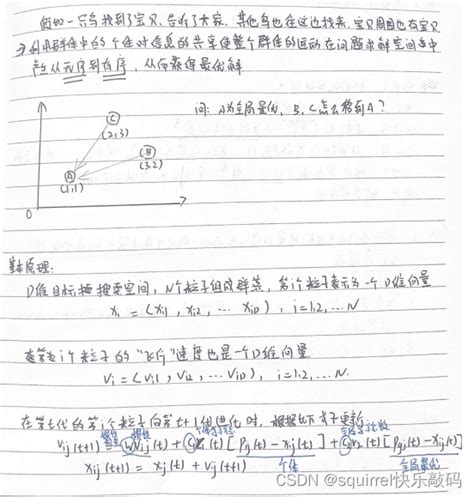 假如一只鸟找到了宝贝,告诉了大家,其他鸟也往这边找来,宝贝周围也有宝贝
→利用群体中的个体对信息的共享使整个群体的运动在问题求解空间中
产生从无序到有序,从而获得最优解
问:A为全局最优,B、C怎么移到A?
C
(2,3)
B
(3,2)
A
(1,1)
0
基本原理:
D维目标搜索空间,N个粒子组成群落,第i个粒子表示为一个D维向量
Xi = (Xi1, Xi2, ... XiD), i=1,2,...N
第i个粒子的“飞行”速度也是一个D维向量
Vi = (Vi1, Vi2, ... ViD), i=1,2,...N.
在第t代的第i个粒子向第t+1代进化时,根据如下式子更新
惯性
Vij(t+1) = wVij(t) + C1r1(t)[Pij(t) - Xij(t)] + C2r2(t)[Pgj(t) - Xij(t)]
Xij(t+1) = Xij(t) + Vij(t+1)
个体
全局最优
CSDN @squirrel快乐敲码